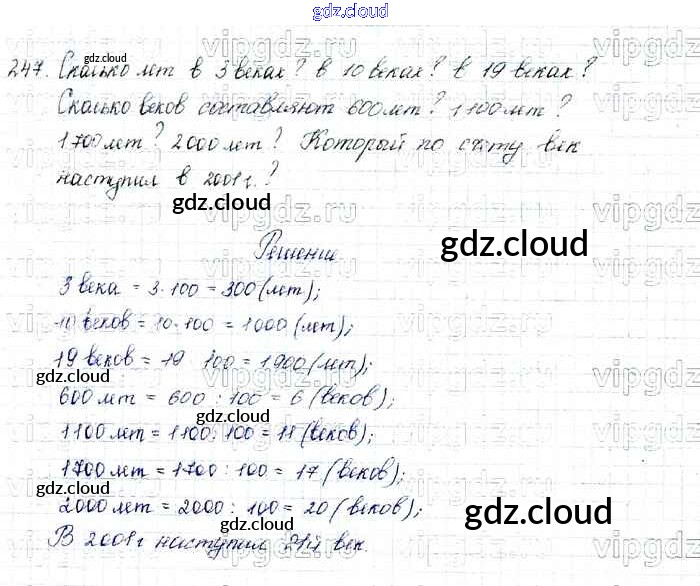 gdz.cloud
vipgdz.ru
gdz.cloud
247. Сколько лет в 3 веках? в 10 веках? в 19 веках?
gdz.cloud
Сколько веков составляют 600 лет? 1100 лет?
1700 лет? 2000 лет? Который по счёту век
gdz.cloud
наступил в 2001 г.?
gdz.cloud
Решение
gdz.cloud
3 века = 3·100 = 300 (лет);
10 веков = 10·100 = 1000 (лет);
19 веков = 19 100 = 1900 (лет);
gdz.cloud
600 лет = 600 : 100 = 6 (веков);
gdz.cloud
1100 лет = 1100 : 100 = 11 (веков);
1700 лет = 1700 : 100 = 17 (веков);
gdz.cloud
2000 лет = 2000 : 100 = 20 (веков);
gdz.cloud
gdz.cloud
В 2001 г наступил 21й век.